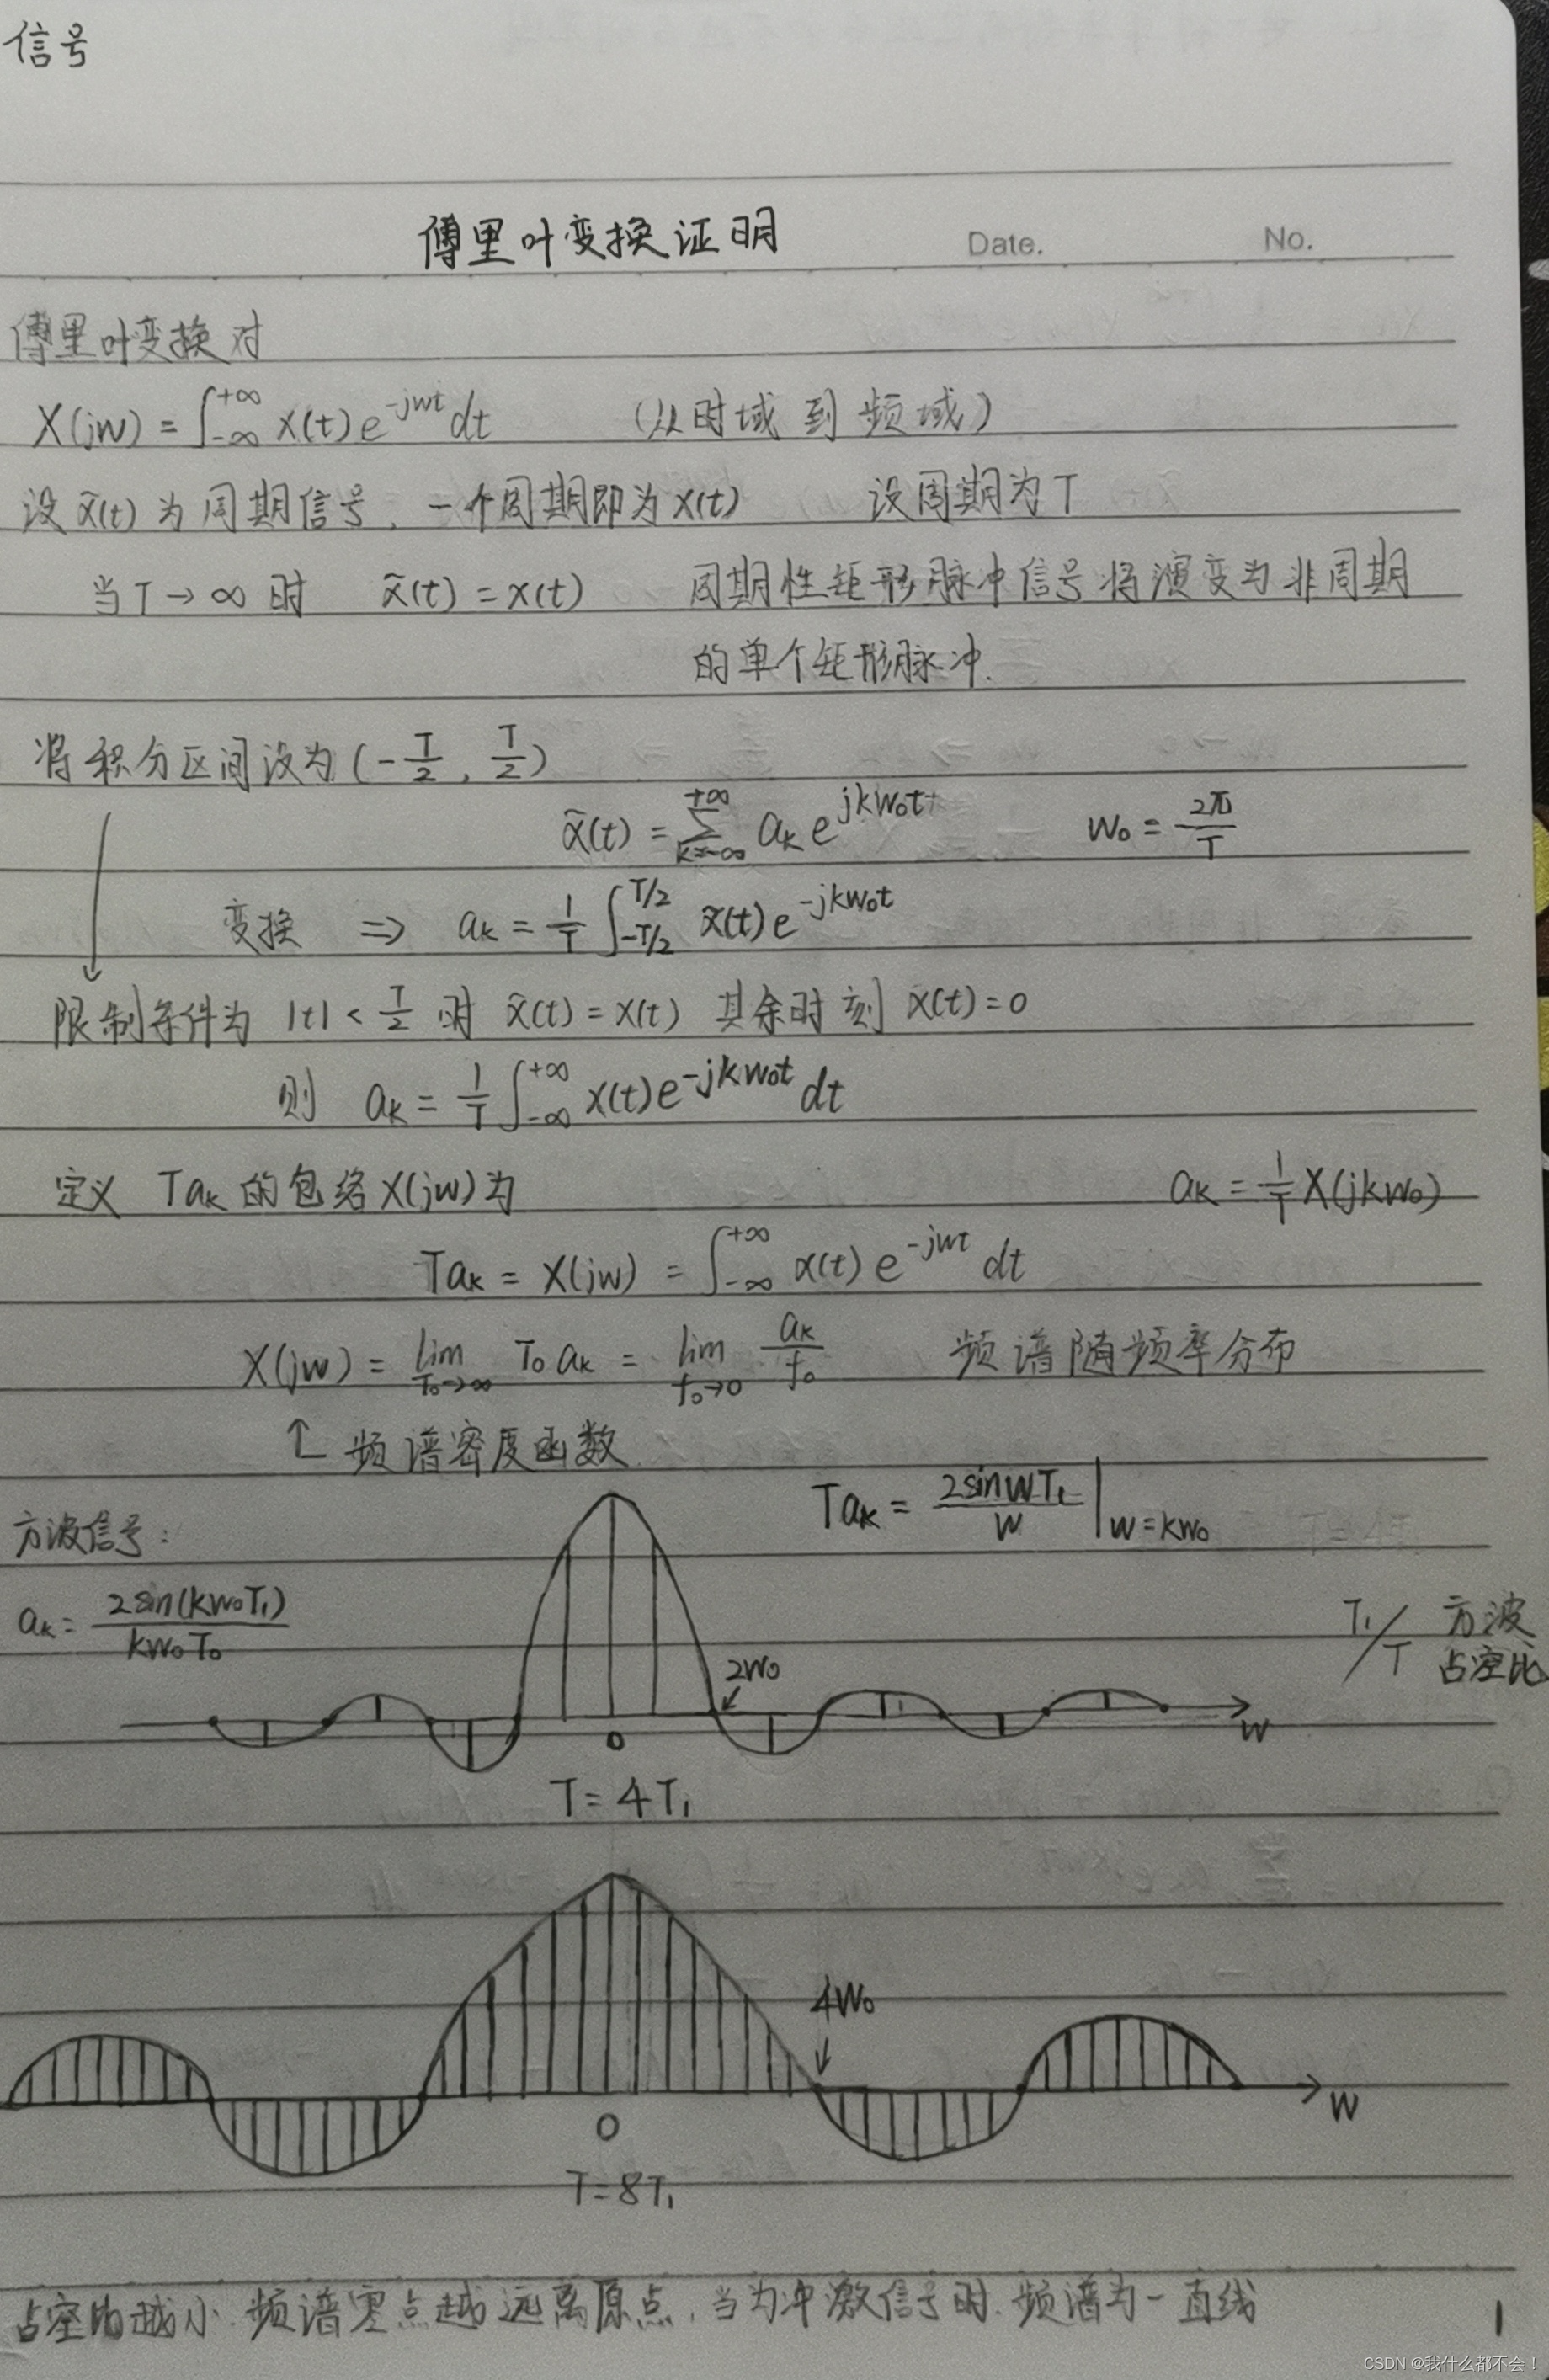 信号
傅里叶变换证明 Date. No.
傅里叶变换对
X(jw) = ∫_{-∞}^{+∞} x(t) e^{-jwt} dt (从时域到频域)
设 x̃(t) 为周期信号, 一个周期即为 x(t) 设周期为 T
当 T → ∞ 时 x̃(t) = x(t) 周期性矩形脉冲信号将演变为非周期
的单个矩形脉冲.
将积分区间设为 (-T/2, T/2)
x̃(t) = ∑_{k=-∞}^{+∞} a_k e^{jkw₀t} w₀ = 2π/T
变换 ⇒ a_k = 1/T ∫_{-T/2}^{T/2} x̃(t) e^{-jkw₀t}
限制条件为 |t| < T/2 时 x̃(t) = x(t) 其余时刻 x(t) = 0
则 a_k = 1/T ∫_{-∞}^{+∞} x(t) e^{-jkw₀t} dt
定义 Ta_k 的包络 X(jw) 为 a_k = 1/T X(jkw₀)
Ta_k = X(jw) = ∫_{-∞}^{+∞} x(t) e^{-jwt} dt
X(jw) = lim_{T₀→∞} T₀ a_k = lim_{f₀→0} a_k/f₀ 频谱随频率分布
频谱密度函数
Ta_k = 2sinwT₁/w |_{w=kw₀}
方波信号:
a_k = 2sin(kw₀T₁)/kw₀T₀
T₁/T 方波
占空比
2w₀
0
w
T = 4T₁
4w₀
0
w
T = 8T₁
占空比越小. 频谱零点越远离原点, 当为冲激信号时. 频谱为一直线
1
CSDN @我什么都不会！